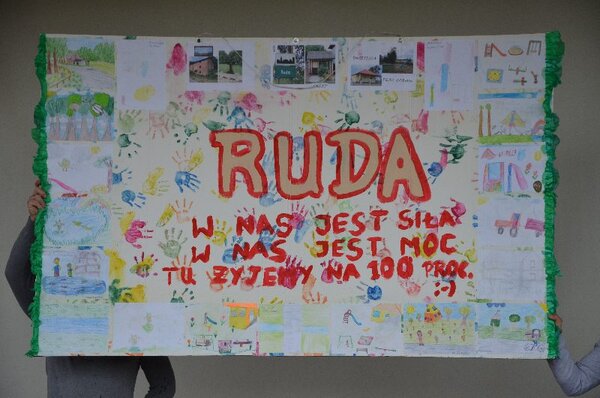 RUDA
W NAS JEST SIŁA
W NAS JEST MOC
TU ŻYJEMY NA 100 PROC.
:-)